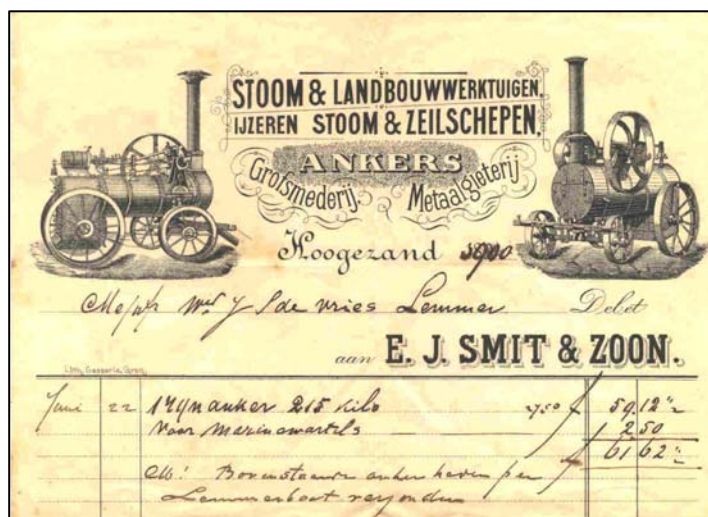 STOOM & LANDBOUWWERKTUIGEN.
IJZEREN STOOM & ZEILSCHEPEN,
ANKERS
Grofsmederij. Metaalgieterij
Hoogezand 1900
Wed J S de Vries Lemmer. Debet
aan E. J. SMIT & ZOON.
Juni 22 1 Rijnanker 215 kilo 27.50 f 59.12
voor Marinewartels 2 50
f 61 62
Bovenstaande anker heden per
Lemmerboot verzonden